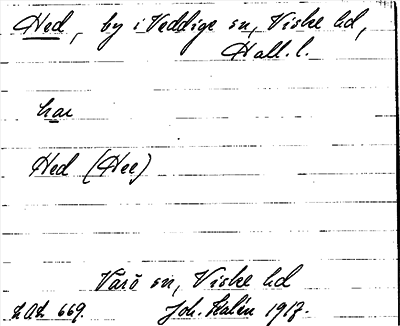 Hed, by i Veddige sn, Viske hd,
Hall. l.
har
Hed (Hee)
Värö sn, Viske hd
LAL 669. Joh. Kalén 1917.